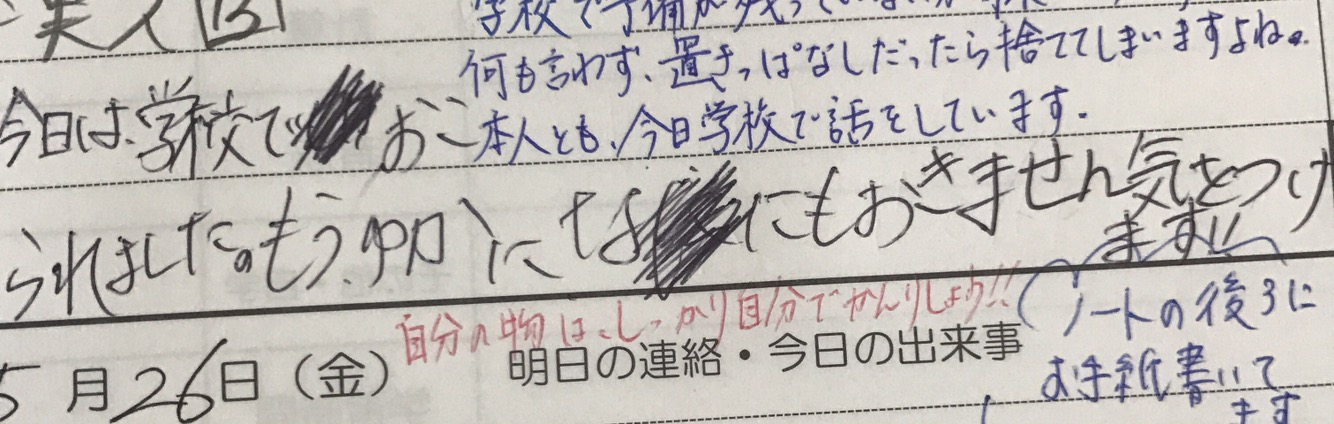 学校で予備が残っていないか
何も言わず、置きっぱなしだったら捨ててしまいますよね。
本人とも、今日学校で話をしています。
今日は、学校で おこ
られました。もう、ゆかに なにもおきません気をつけ
ます!!
自分の物は、しっかり自分でかんりしよう!!
(ノートの後ろに
お手紙書いて
ます
5月26日(金)
明日の連絡・今日の出来事